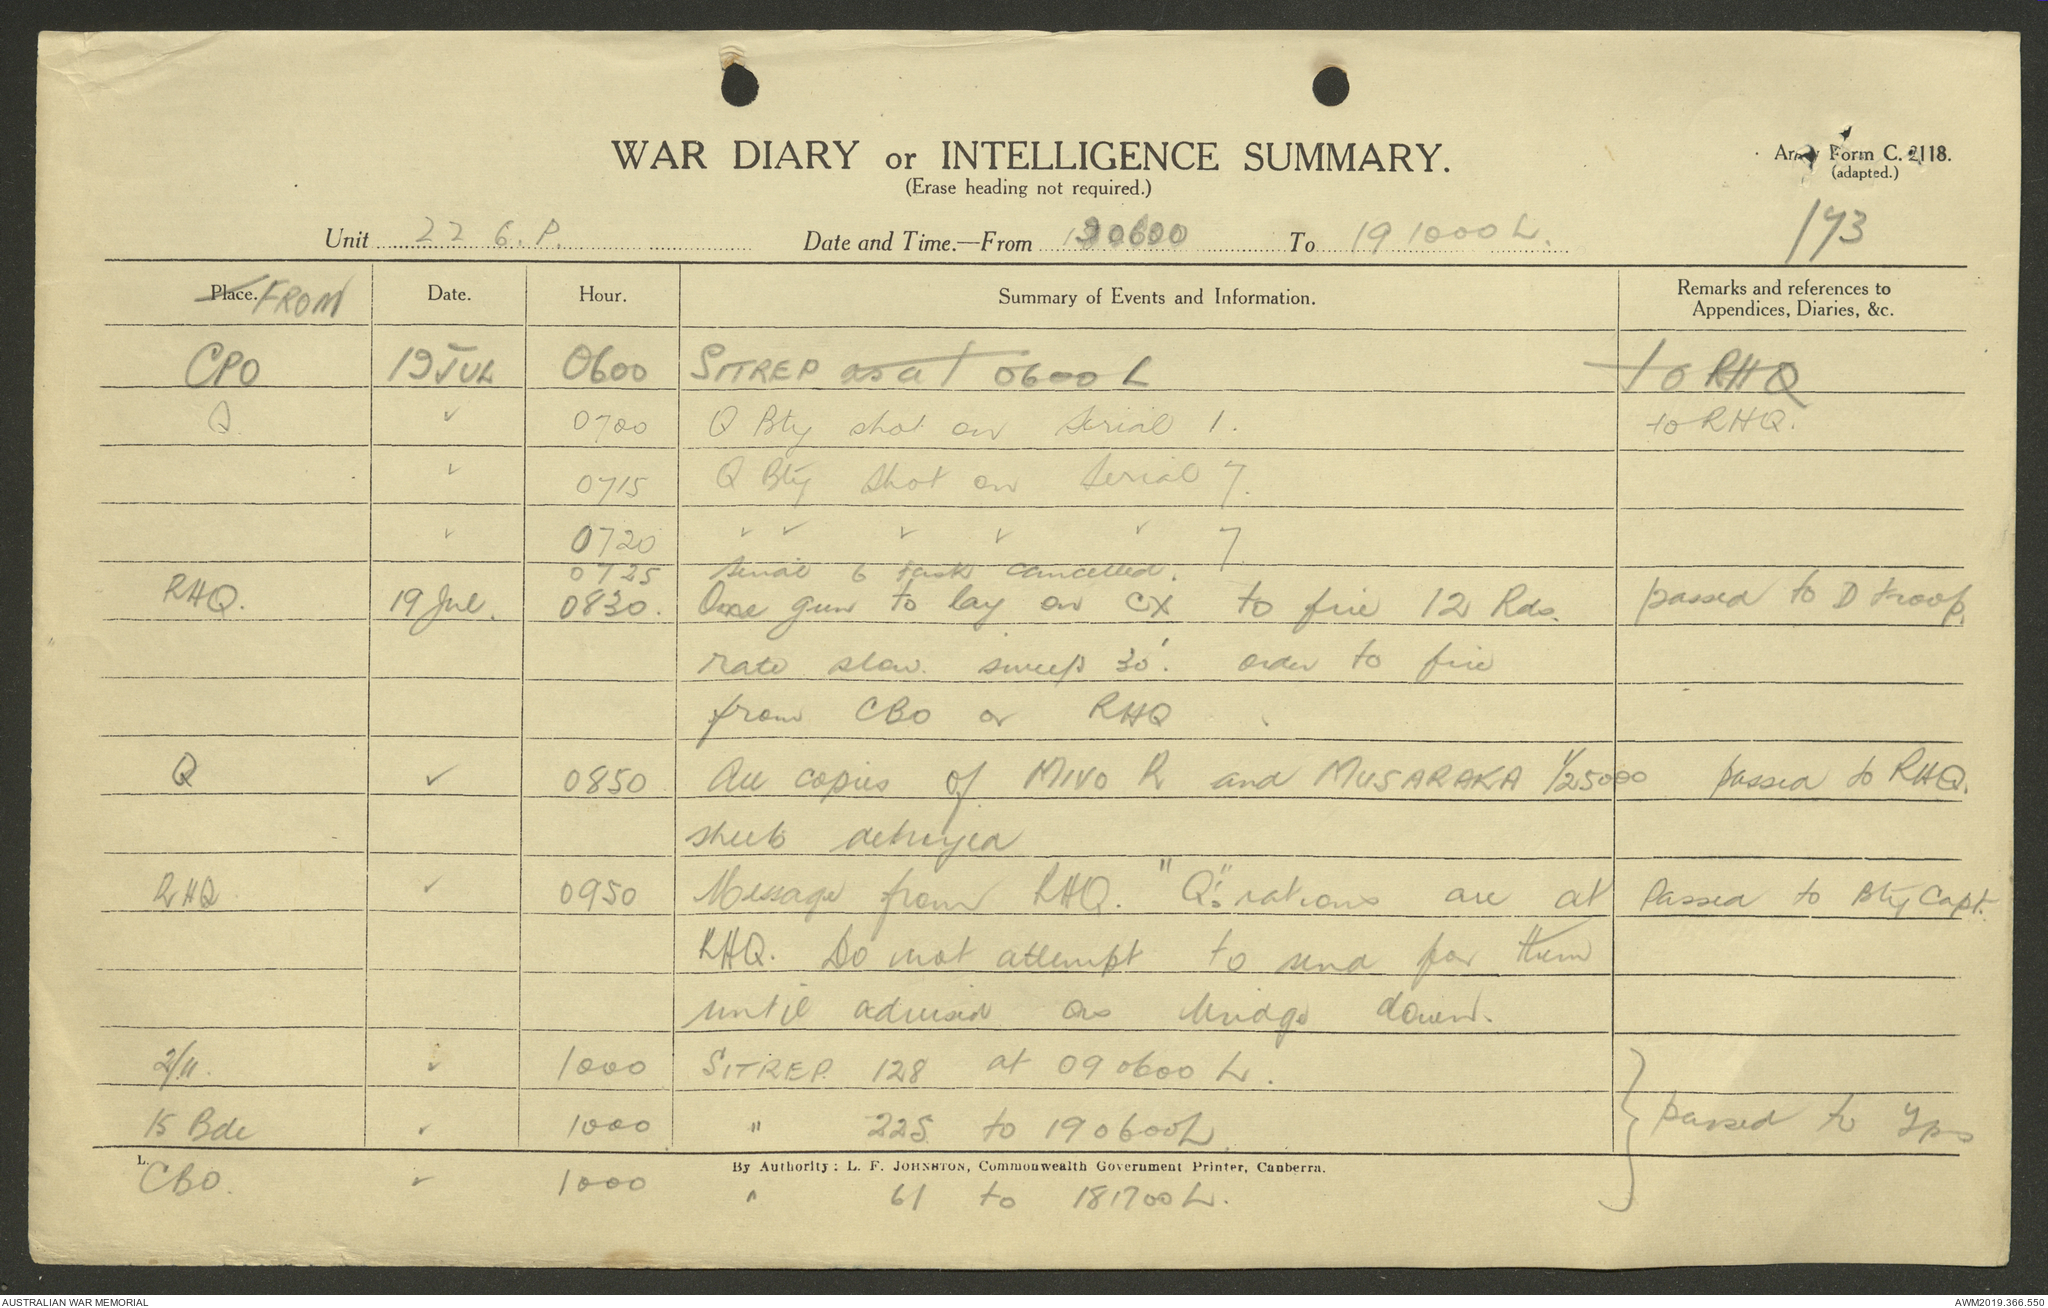 WAR DIARY or INTELLIGENCE SUMMARY.
(Erase heading not required.)
Army Form C. 2118.
(adapted.)
173
Unit 22 G.P. Date and Time.—From 190600 To 191000 L.
Place. FROM Date. Hour. Summary of Events and Information. Remarks and references to Appendices, Diaries, &c.
CPO 19 JUL 0600 SITREP as at 0600 L to RHQ
Q ✓ 0700 Q Bty shot on Serial 1. to RHQ.
✓ 0715 Q Bty shot on Serial 7.
✓ 0720 ✓ ✓ ✓ ✓ ✓ 7
0725 Serial 6 task cancelled.
RHQ. 19 Jul. 0830. One gun to lay on CX to fire 12 Rds. passed to D troop.
rate slow. sweep 30'. order to fire
from CBO or RHQ
Q ✓ 0850 All copies of MIVO R and MUSARAKA 1/25000 passed to RHQ.
sheets destroyed
RHQ ✓ 0950 Message from RHQ. "Q's" rations are at Passed to Bty Capt.
RHQ. Do not attempt to send for them
until advised as bridge down.
2/11. ✓ 1000 SITREP. 128 at 090600 L.
15 Bde ✓ 1000 " 225 to 190600L passed to Tps
L. By Authority: L. F. JOHNSTON, Commonwealth Government Printer, Canberra.
CBO. ✓ 1000 " 61 to 181700L.
AUSTRALIAN WAR MEMORIAL
AWM2019.366.550